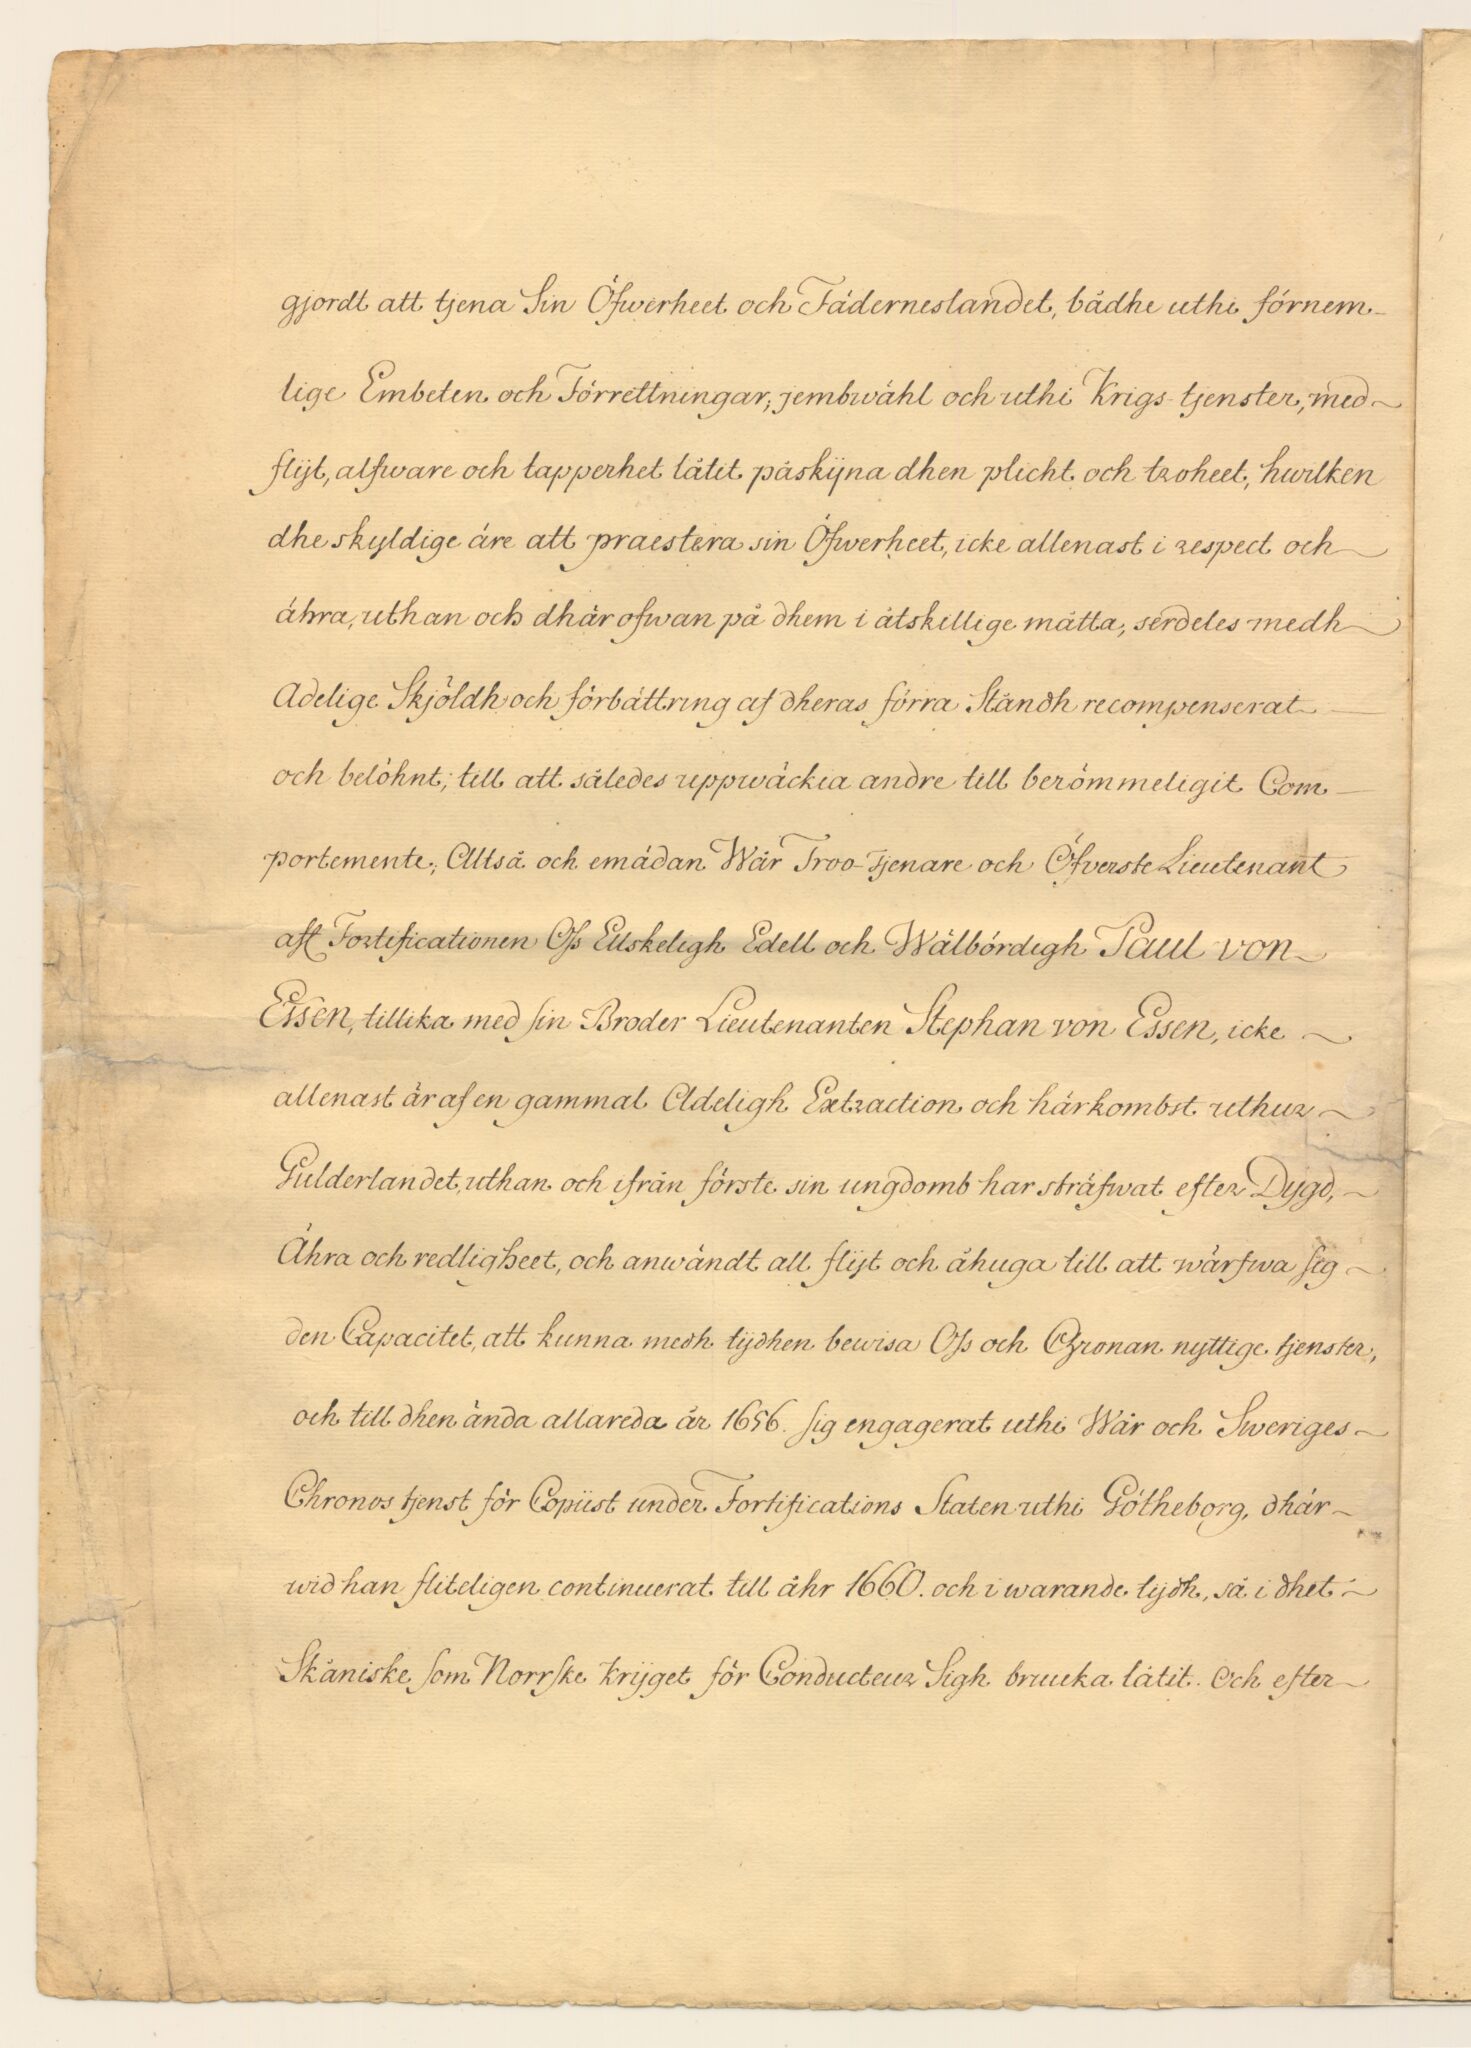 gjordt att tjena Sin Öfwerheet och Fäderneslandet, bådhe uthi förnem-
lige Embeten och Förrettningar, jembwähl och uthi Krigs-tjenster, med
flijt, alfware och tapperhet låtit påskijna dhen plicht och troheet, hwilken
dhe skyldige äre att praestera sin Öfwerheet, icke allenast i respect och
ähra, uthan och dhär ofwan på dhem i åtskillige måtta, serdeles medh
Adelige Skjöldh och förbättring af dheras förra Ståndh recompenserat
och belöhnt, till att således uppwäckia andre till berömmeligit Com-
portemente; Altså och emädan Wår Troo-Tjenare och Öfverste Lieutenant
aft Fortificationen Oss Ellskeligh Edell och Wälbördigh Paul von
Essen, tillika med sin Broder Lieutenanten Stephan von Essen, icke
allenast är af en gammal Adeligh Extraction och härkombst uthur
Gulderlandet, uthan och ifrån förste sin ungdomb har sträfwat efter Dygd,
Ähra och redligheet, och anwändt all flijt och åhuga till att wärfwa sig
den Capacitet, att kunna medh tijdhen bewisa Oss och Chronan nyttige tjenster,
och till dhen ända allareda år 1656. sig engagerat uthi Wår och Sweriges
Chronos tjenst för Copiist under Fortifications Staten uthi Götheborg, dhär-
wid han fliteligen continuerat till åhr 1660. och i warande tijdh, så i dhet
Skåniske som Norrske Krijget för Conducteur Sigh bruuka låtit. Och efter